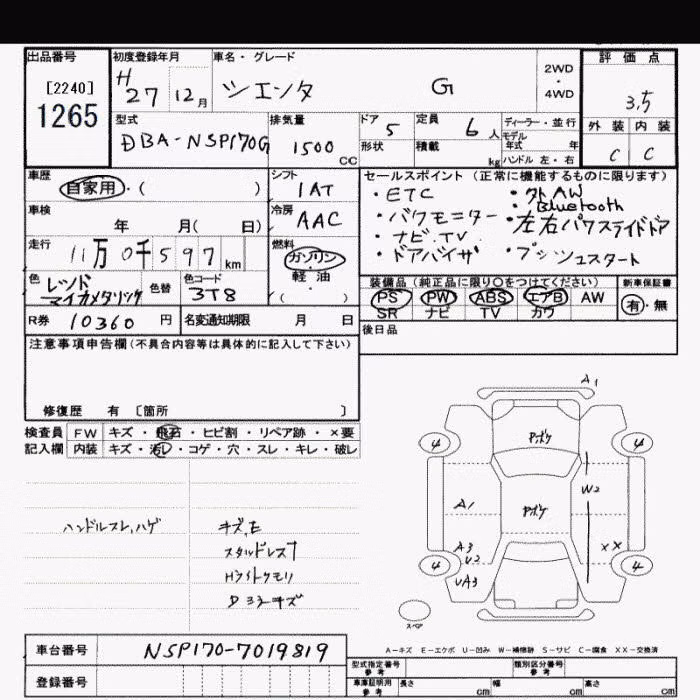 出品番号
[2240]
1265
初度登録年月
H27 12月
車名・グレード
シエンタ G
2WD
・
4WD
評価点
3.5
外装 内装
C C
型式
DBA-NSP170G
排気量
1500 CC
ドア 5
形状
定員 6人
積載 kg
ディーラー・並行
モデル年式 年
ハンドル 左・右
車歴
自家用・( )
シフト
1AT
車検
年 月( 日)
冷房
AAC
走行
11万0千597km
燃料
ガソリン・軽・油・( )
色
レッドマイカメタリック
色替
色コード
3T8
R券 10360 円
名変通知期限 月 日
セールスポイント (正常に機能するものに限ります)
・ETC ・外AW
・バクモニター ・Bluetooth
・ナビ.TV ・左右パワスライドドア
・ドアバイザ ・プッシュスタート
装備品(純正品に限り○をつけてください)
PS PW ABS エアB AW
SR ナビ TV カワ
新車保証書
有・無
後日品
注意事項申告欄(不具合内容等は具体的に記入して下さい)
修復歴 有 〔箇所 〕
検査員記入欄
FW キズ・飛石・ヒビ割・リペア跡・×要
内装 キズ・汚レ・コゲ・穴・スレ・キレ・破レ
ハンドルスレ,ハゲ
キズ,E
A1
4 4
Pボケ
W2
A1
Pボケ
A3
U2
XX
4 4
UA3
スペア
A-キズ E-エクボ U-凹み W-補修跡 S-サビ C-腐食 XX-交換済
車台番号 NSP170-7019819
登録番号
型式指定番号 参考
類別区分番号 参考
車庫証明用 参考 長さ cm 幅 cm 高さ cm